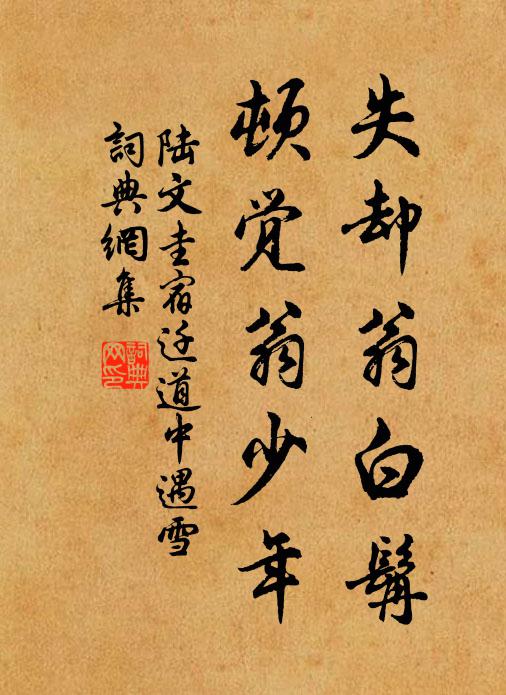 失却翁白髯
頓覺翁少年
陸文圭宿迁道中遇雪
詞典網集
詞典網印